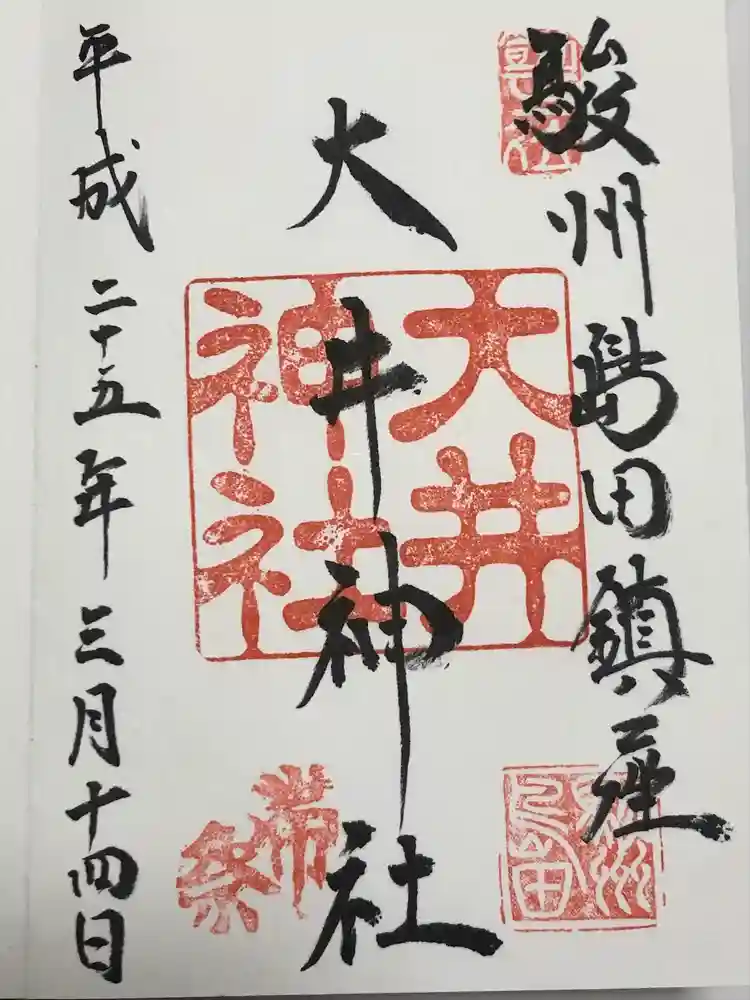 駿州島田鎮座
大井神社
大井神社
帯祭
平成二十五年三月十四日